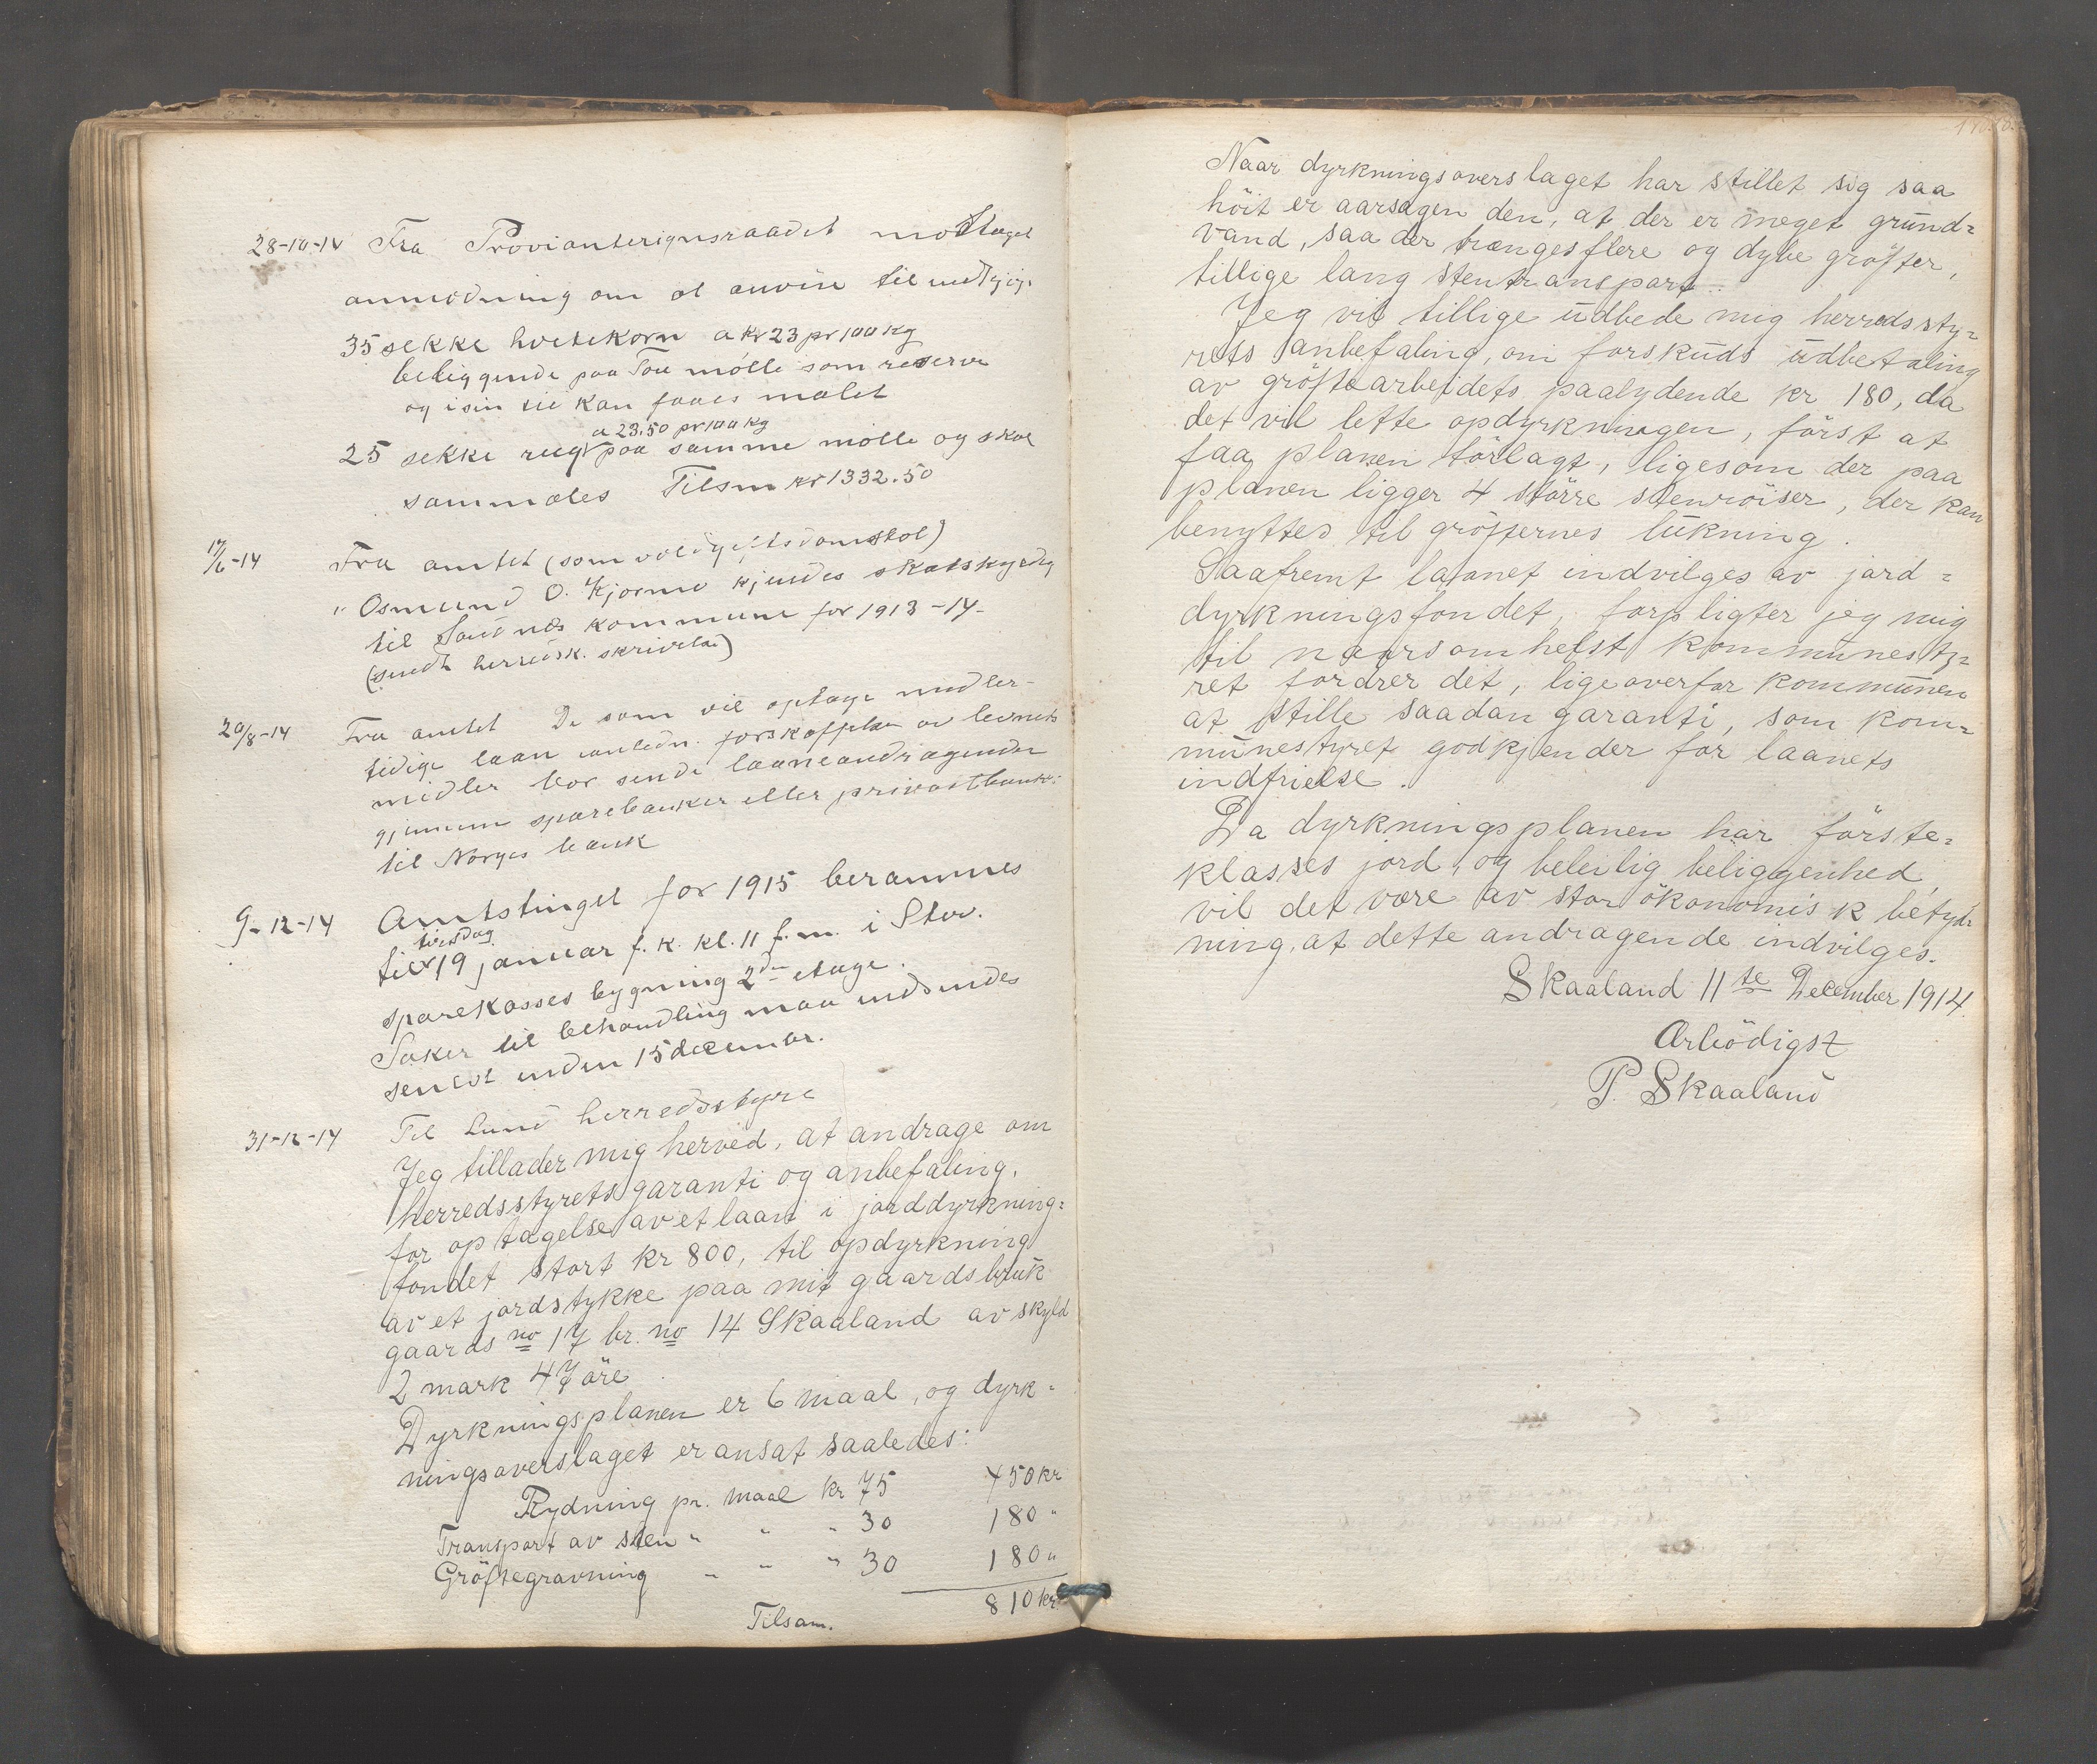 28-10-14 Fra Provianteringsraadet mottaget
anmodning om at anvise til utdeling
35 sekke hvetekorn a kr 23 pr 100 kg
beliggende paa Tou mølle som reserve
og i sin tid kan faaes malet
a 23.50 pr 100 kg
25 sekke rug paa samme mølle og skal
sammales Tilsm kr 1332.50
17/6-14 Fra amtet (som voldgiftsdomstol)
"Osmund O. Kjørmo kjendes skatskyldig
til Soknd. kommune for 1913-14-
(sendt herredsk. skrivelse)
20/8-14 Fra amtet De som vil optage midler-
tidige laan i anledn. forskaffelse av levnets
midler bør sende laaneandragender
gjennem sparebanker eller privatbanker
til Norges bank
9-12-14 Amtstinget for 1915 berammes
tirsdag
til 19 januar f. k. kl. 11 f.m. i Stav.
sparekasses bygning 2den etage.
Saker til behandling maa indsendes
senest inden 15 december.
31-12-14 Til Lund herredsstyre
Jeg tillader mig herved, at andrage om
herredsstyrets garanti og anbefaling,
for optagelse av et laan i jorddyrkning=
fondet stort kr 800, til opdyrkning
av et jordstykke paa mit gaardsbruk
gaards no 17 br. no 14 Skaaland av skyld
2 mark 47 øre.
Dyrkningsplanen er 6 maal, og dyrk-
ningsoverslaget er ansat saaledes:
Rydning pr. maal kr 75 450 kr
Transport av sten " " " 30 180 "
Grøftegravning " " " 30 180 "
Tilsam. 810 kr.
Naar dyrkningsoverslaget har stillet sig saa
höit er aarsagen den, at der er meget grund=
vand, saa der trænges flere og dybe gröfter,
tillige lang stentransport.
Jeg vil tillige udbede mig herredssty=
rets anbefaling, om forskuds udbetaling
av gröftearbeidets paalydende kr 180, da
det vil lette opdyrkningen, först at
faa planen törlagt, ligesom der paa
planen ligger 4 större stenröiser, der kan
benyttes til gröfternes lukning.
Saafremt laanet indvilges av jord=
dyrkningsfondet, forpligter jeg mig
til naarsomhelst kommunesty=
ret fordrer det, ligeoverfor kommunen
at stille saadan garanti, som kom=
munestyret godkjender for laanets
indfrielse.
Da dyrkningsplanen har förste=
klasses jord, og beleilig beliggenhed,
vil det være av stor ökonomisk betyd=
ning, at dette andragende indvilges.
Skaaland 11te December 1914.
Ærbödigst
P. Skaaland